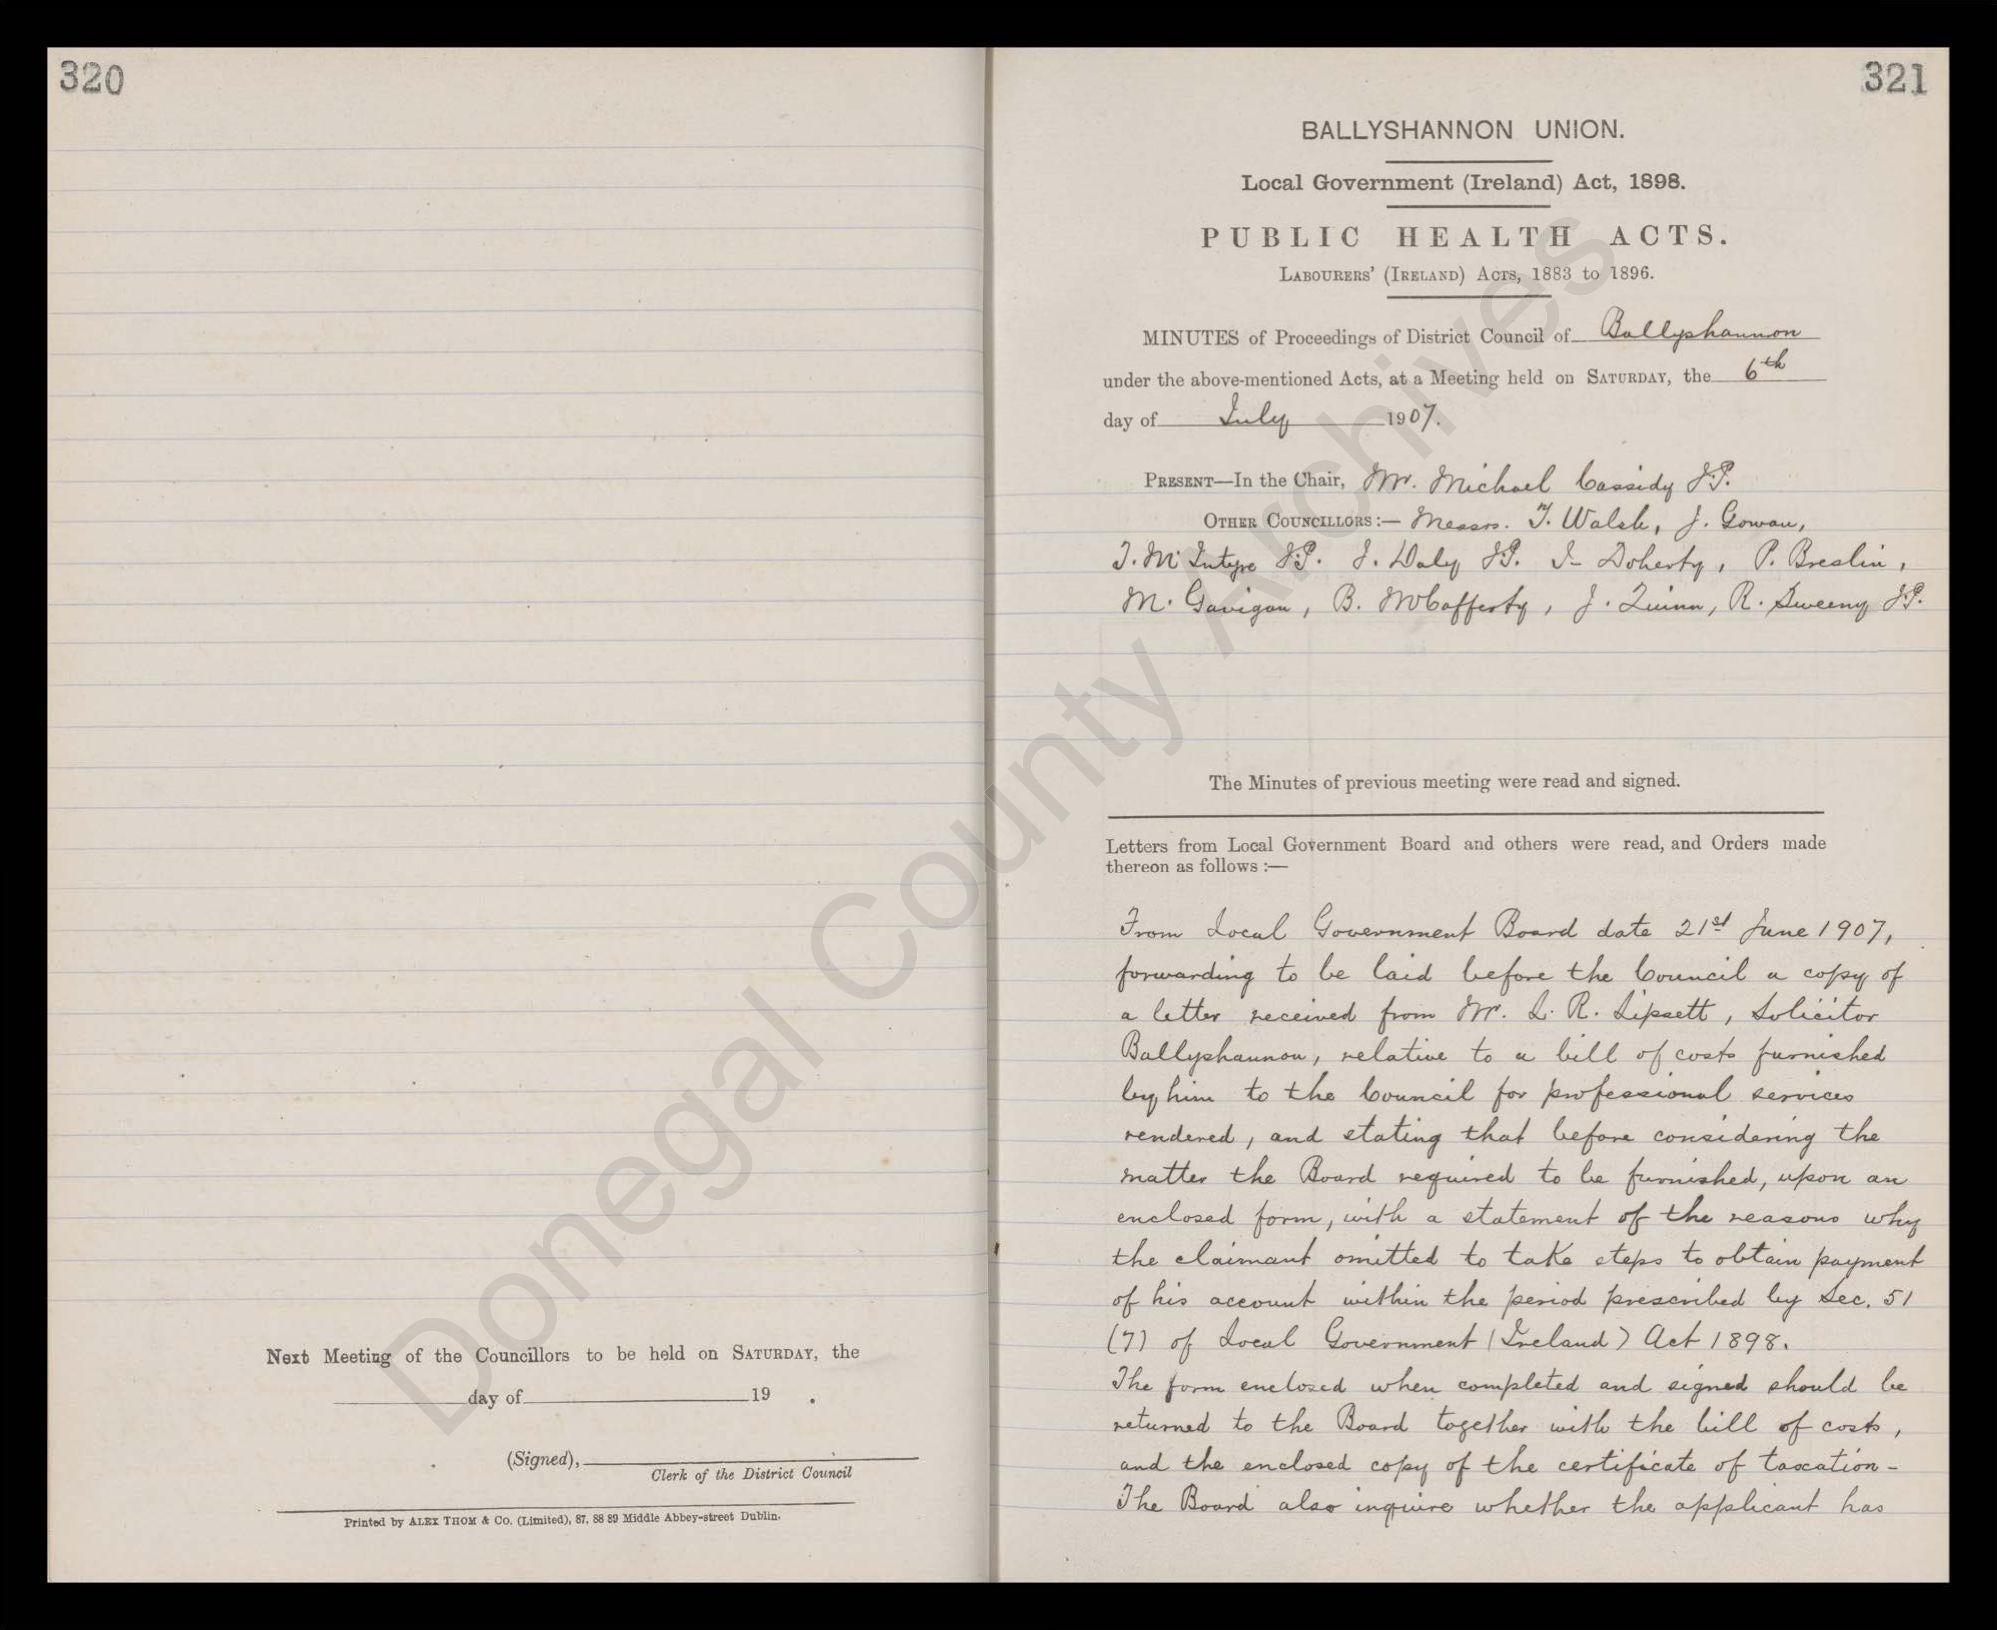 320
Next Meeting of the Councillors to be held on SATURDAY, the
day of 19 .
(Signed),
Clerk of the District Council
Printed by ALEX THOM & CO. (Limited), 87, 88 89 Middle Abbey-street Dublin.
321
BALLYSHANNON UNION.
Local Government (Ireland) Act, 1898.
PUBLIC HEALTH ACTS.
LABOURERS' (IRELAND) ACTS, 1883 to 1896.
MINUTES of Proceedings of District Council of Ballyshannon
under the above-mentioned Acts, at a Meeting held on SATURDAY, the 6th
day of July 1907.
PRESENT—In the Chair, Mr. Michael Cassidy J.P.
OTHER COUNCILLORS:— Messrs. T. Walsh, J. Gowan,
T. McIntyre J.P. J. Daly J.P. I- Doherty, P. Breslin,
M. Gavigan, B. McCafferty, J. Quinn, R. Sweeny J.P.
The Minutes of previous meeting were read and signed.
Letters from Local Government Board and others were read, and Orders made
thereon as follows :—
From Local Government Board date 21st June 1907,
forwarding to be laid before the Council a copy of
a letter received from Mr. L. R. Lipsett, Solicitor
Ballyshannon, relative to a bill of costs furnished
by him to the Council for professional services
rendered, and stating that before considering the
matter the Board required to be furnished, upon an
enclosed form, with a statement of the reasons why
the claimant omitted to take steps to obtain payment
of his account within the period prescribed by Sec. 51
(7) of Local Government (Ireland) Act 1898.
The form enclosed when completed and signed should be
returned to the Board together with the bill of costs,
and the enclosed copy of the certificate of taxation -
The Board also inquire whether the applicant has
Donegal County Archives